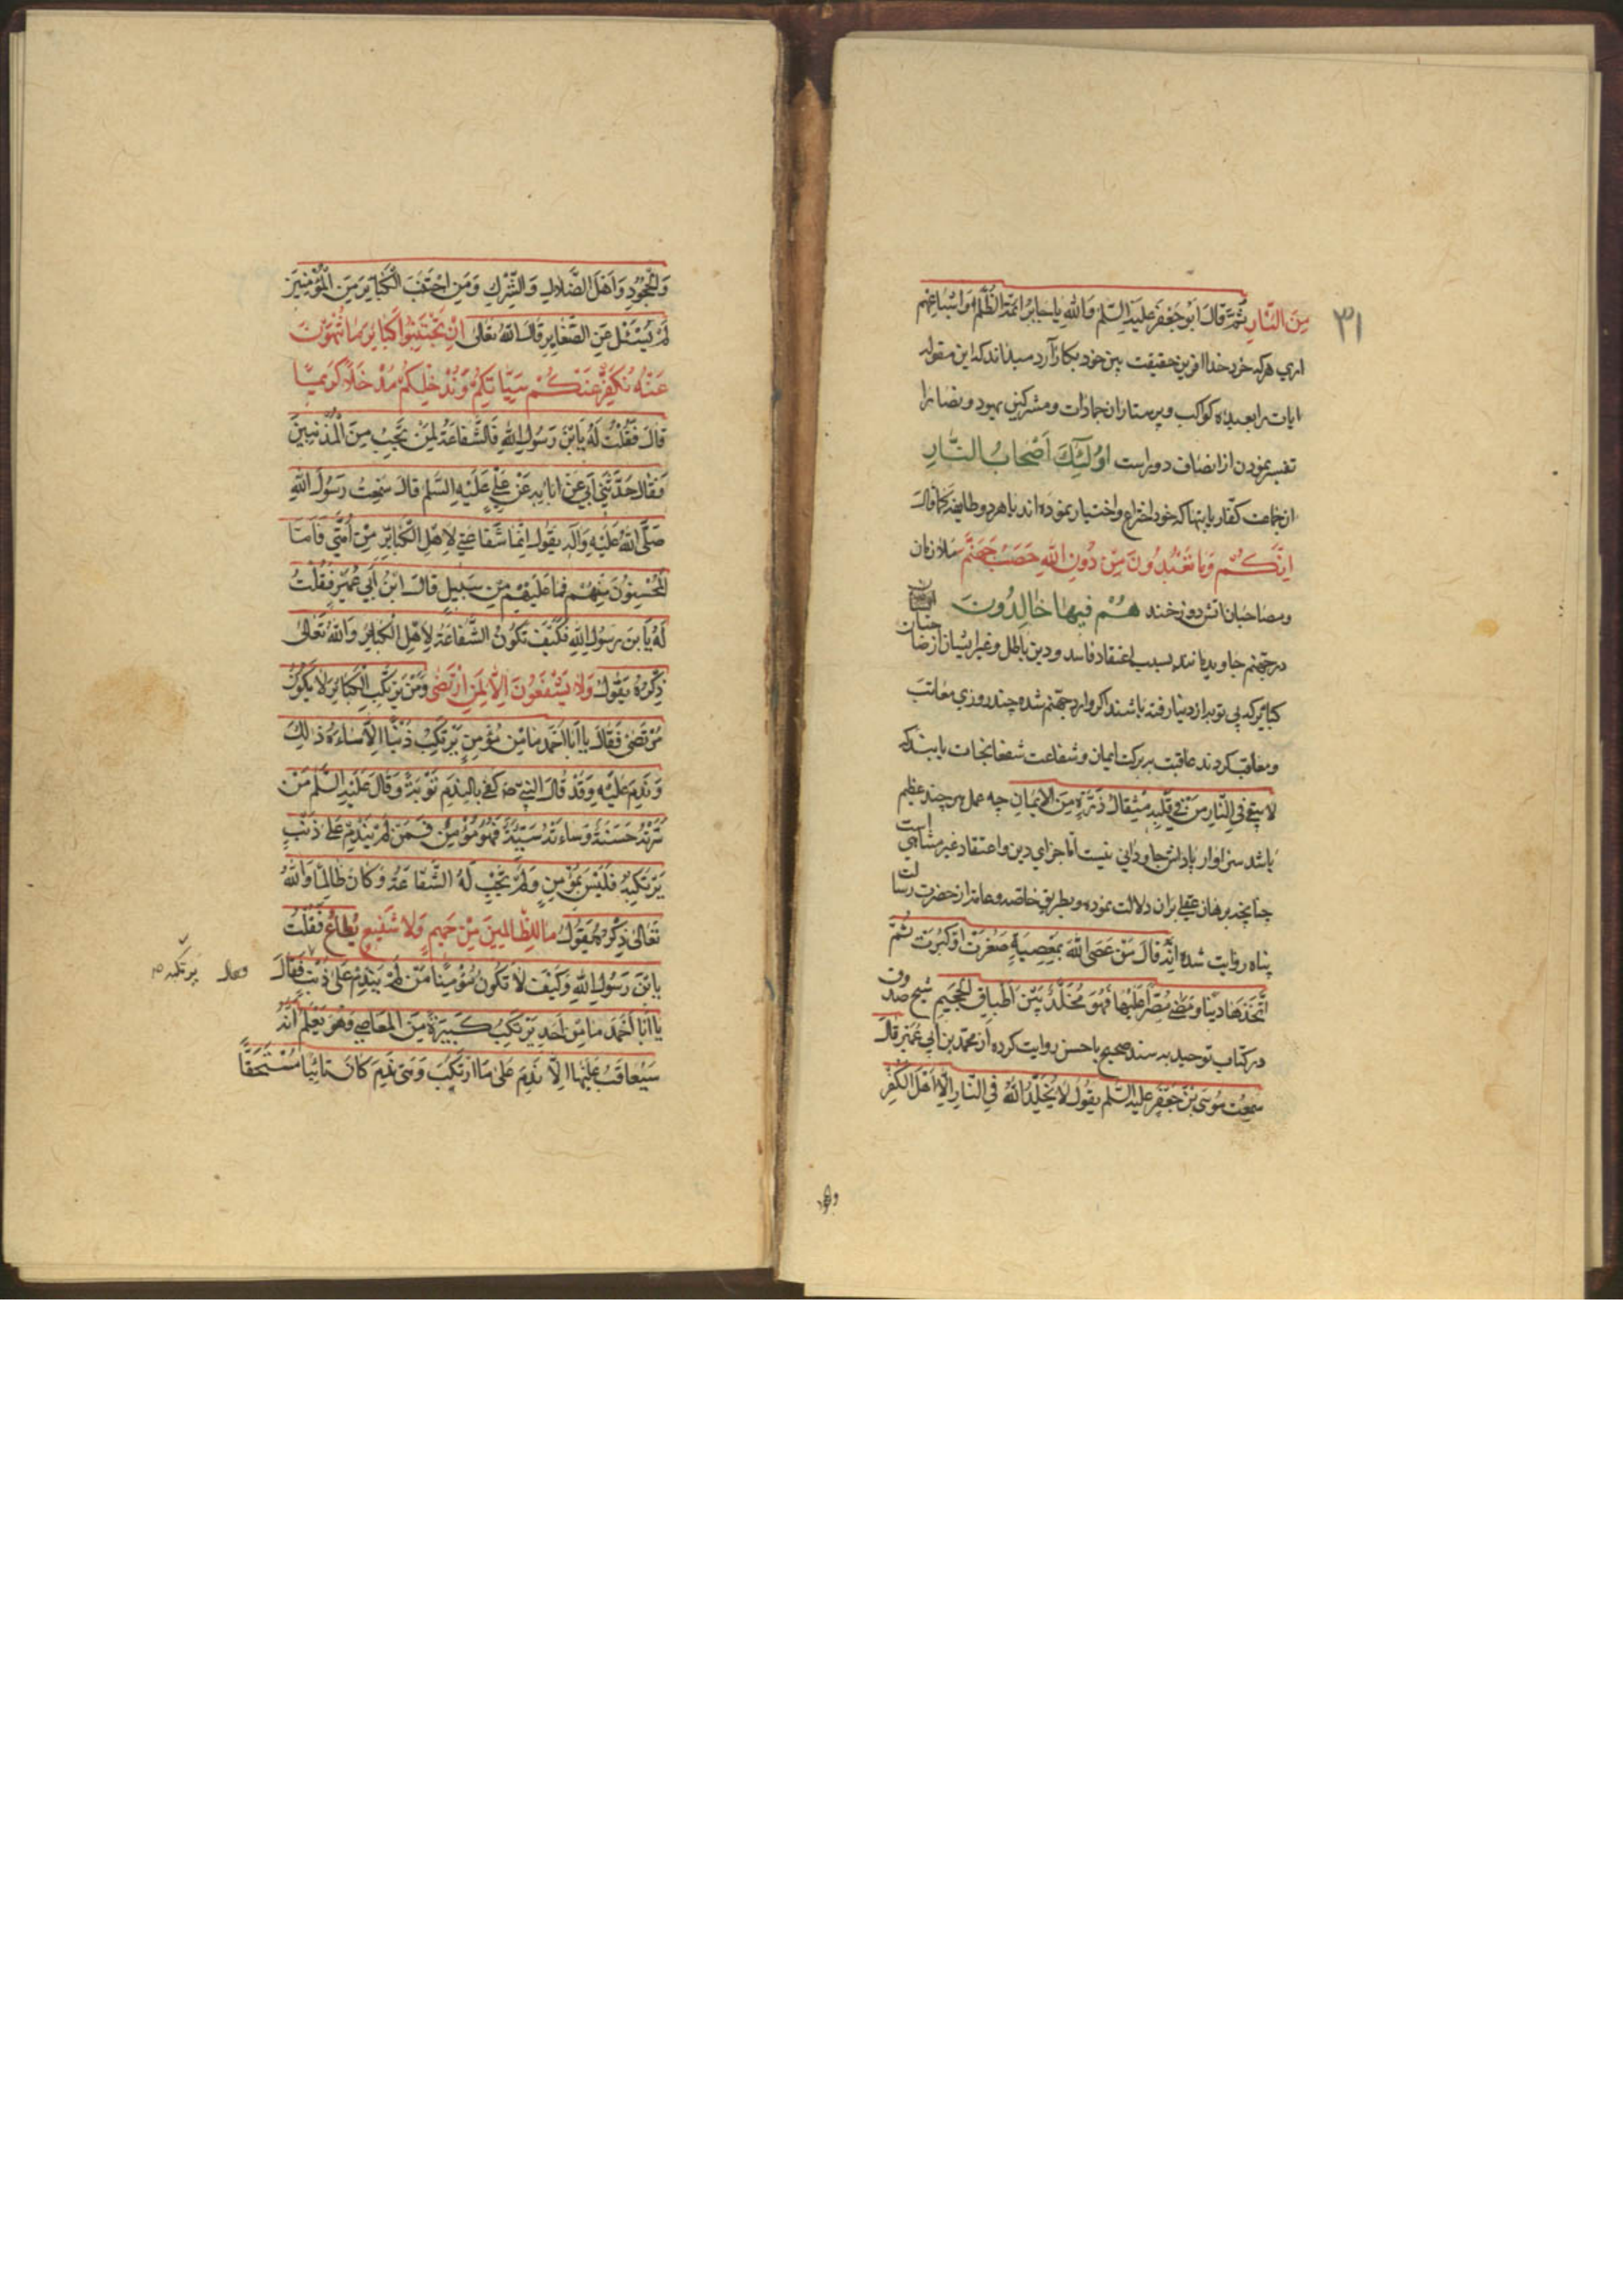 ۳۱
مِنَ النّارِ ثُمَّ قالَ اَبُو جَعْفَر عليه السّلم وَاللّهِ يا جابِرُ ائمّة الظُّلْمِ وَاشياعِهِم
اري هركه خرد خدا افرين حقيقت بين خود بكار آرد ميداند كه اين مقوله
ايات را بعبده كواكب وپرستاران جمادات ومشركين يهود ونصارا
تفسير نمودن از انصاف دور است اُولٰئِكَ اَصْحابُ النّارِ
ان جماعت كفّار با بتها كه خود اختراع واختيار نموده اند با هر دو طايفه كما قالَ
اِنَّكُمْ وَما تَعْبُدُونَ مِنْ دُونِ اللّهِ حَصَبُ جَهَنَّمَ ملازمان
ومصاحبان اتش دوزخند هُمْ فيها خالِدُونَ
در جهنّم جاويد بمانند بسبب اعتقاد فاسد ودين باطل وغير ايشان از صاحبان
كباير كه بي توبه از دنيا رفته باشند اكر وارد جهنّم شده چند روزي معاتب
ومعاقب كردند عاقبت ببركت ايمان وشفاعت شفعا نجات يابند كه
لا يبقي فِي النّارِ مَنْ في قَلْبِهِ مِثْقالُ ذَرَّةٍ مِنَ الاِيمانِ چه عمل هر چند عظيم
باشد سزاوار پاداش جاوداني نيست امّا جزاي دين واعتقاد غير متناهي است
چنانچه برهان عقلي بران دلالت نموده وبطريق خاصّه وعامّه از حضرت رسالت
پناه روايت شده اِنَّهُ قالَ مَنْ عَصَى اللّهَ بمَعْصِيَةٍ صَغُرَتْ اَوْ كَبُرَتْ ثُمَّ
اتَّخَذَها دينًا ومَضى مُصِرًّا عَلَيْها فَهُوَ مُخَلَّدٌ بَيْنَ اَطْباقِ الْجَحيمِ شيخ صدوق
در كتاب توحيد به سند صحيح يا حسن روايت كرده از محمّد بن ابي عُمَيْر قالَ
سَمِعْتُ مُوسَى بْنَ جَعْفَرٍ عليه السّلم يقُولُ لا يُخَلِّدُ اللّهُ فِي النّارِ اِلّا اَهْلَ الْكُفْرِ
والجحود
وَالْجُحُودِ وَاَهْلَ الضَّلالِ وَالشِّرْكِ وَمَنِ اجْتَنَبَ الْكَبايِرَ مِنَ الْمُؤْمِنِينَ
لَمْ يُسْئَلْ عَنِ الصَّغايِرِ قالَ اللّهُ تعالى اِنْ تَجْتَنِبُوا كَبايِرَ ما تُنْهَوْنَ
عَنْهُ نُكَفِّرْ عَنْكُمْ سَيِّاتِكُمْ وَنُدْخِلْكُمْ مُدْخَلًا كَريمًا
قالَ فَقُلْتُ لَهُ يَابْنَ رَسُولِ اللّهِ فَالشَّفاعَةُ لِمَنْ تَجِبُ مِنَ الْمُذْنِبِينَ
فَقالَ حَدَّثَنِي اَبِي عَنْ ابائِهِ عَنْ عَلِيٍّ عَلَيْهِ السَّلم قالَ سَمِعْتُ رَسُولَ اللّهِ
صَلَّى اللّهُ عَلَيْهِ وَآلِهِ يقُولُ اِنَّما شَفاعَتِي لِاَهْلِ الْكَبايِرِ مِنْ اُمَّتِي فَاَمَّا
الْمُحْسِنُونَ مِنْهُمْ فَما عَلَيْهِمْ مِنْ سَبِيلٍ قالَ ابْنُ اَبِي عُمَيْرٍ فَقُلْتُ
لَهُ يَا بن رسُولِ اللّهِ فَكَيْفَ تَكُونُ الشَّفاعَةُ لِاَهْلِ الْكَبائِرِ وَاللّهُ تَعالى
ذِكْرُهُ يَقُولُ وَلا يَشْفَعُونَ اِلّا لِمَنِ ارْتَضى وَمَنْ يَرْتَكِبِ الْكَبائِرَ لا يَكُونُ
مُرْتَضىً فَقالَ يا اَبا اَحْمَد ما مِنْ مُؤْمِنٍ يَرْتَكِبُ ذَنْبًا اِلّا ساءَهُ ذلِكَ
وَنَدِمَ عَلَيْهِ وَقَدْ قالَ النبيّ صه كَفى بِالنَّدَمِ تَوْبَةً وَقالَ عَلَيْهِ السَّلم مَنْ
سَرَّتْهُ حَسَنَةٌ وَساءَتْهُ سَيِّئَةٌ فَهُوَ مُؤْمِنٌ فَمَنْ لَمْ يَنْدَمْ عَلى ذَنْبٍ
يَرْتَكِبُهُ فَلَيْسَ بِمُؤْمِنٍ وَلَمْ تَجِبْ لَهُ الشَّفاعَةُ وَكانَ ظالِمًا وَاللّهُ
تَعالى ذِكْرُهُ يَقُولُ ما لِلظّالِمِينَ مِنْ حَمِيمٍ وَلا شَفِيعٍ يُطاعُ فَقُلْتُ
يا بْنَ رَسُولِ اللّهِ وَكَيْفَ لا تَكُونُ مُؤْمِنًا مَنْ لَمْ يَنْدِمْ عَلى ذَنْبٍ فَقالَ
يَرْتَكِبُه
يا اَبا اَحْمَد ما مِنْ اَحَدٍ يَرْتَكِبُ كَبِيرَةً مِنَ الْمَعاصِي وَهُوَ يَعْلَمُ اَنَّهُ
سَيُعاقَبُ عَلَيْها اِلّا نَدِمَ عَلى مَا ارْتَكَبَ وَمَتى نَدِمَ كانَ تائِبًا مُسْتَحِقًّا